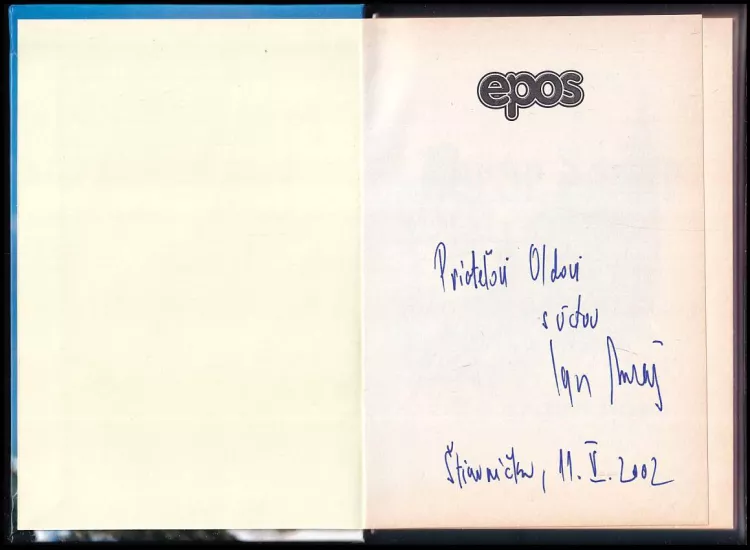 epos
Priateľovi Oldovi
s úctou
Ján
Štiavnička, 11. V. 2002